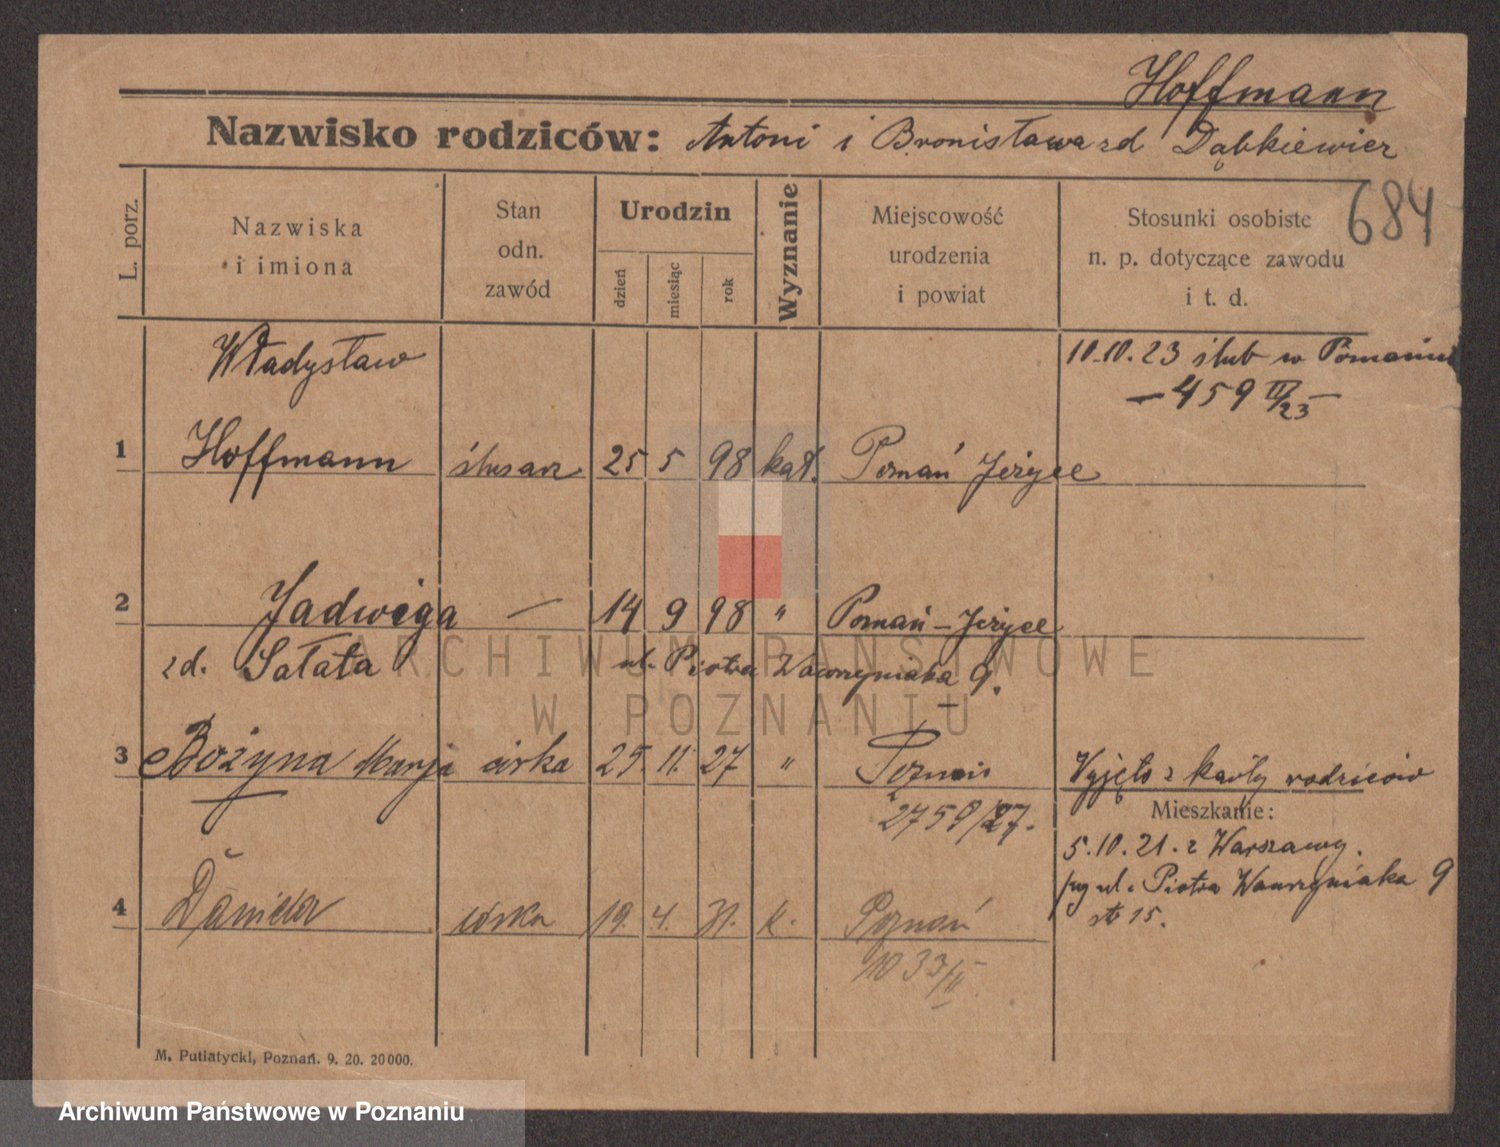 Hoffmann
Nazwisko rodziców: Antoni i Bronisława zd Dąbkiewicz
684
L. porz.
Nazwiska
i imiona
Stan
odn.
zawód
Urodzin
dzień
miesiąc
rok
Wyznanie
Miejscowość
urodzenia
i powiat
Stosunki osobiste
n. p. dotyczące zawodu
i t. d.
Władysław
10.10.23 ślub w Poznaniu
— 459 III/23 —
1 Hoffmann ślusarz 25 5 98 kat. Poznań Jeżyce
2 Jadwiga — 14 9 98 " Poznań – Jeżyce
zd. Sałata ul. Piotra Wawrzyniaka 9.
3 Bożyna Marja córka 25. 11. 27 " Poznań Wyjęto z karty rodziców
2759/27.
Mieszkanie:
5.10.21. z Warszawy.
ul. Piotra Wawrzyniaka 9
4 Daniela córka 19. 4. 31. k. Poznań
15.
1033/II
M. Putiatycki, Poznań. 9. 20. 20000.
ARCHIWUM PAŃSTWOWE
W POZNANIU
Archiwum Państwowe w Poznaniu